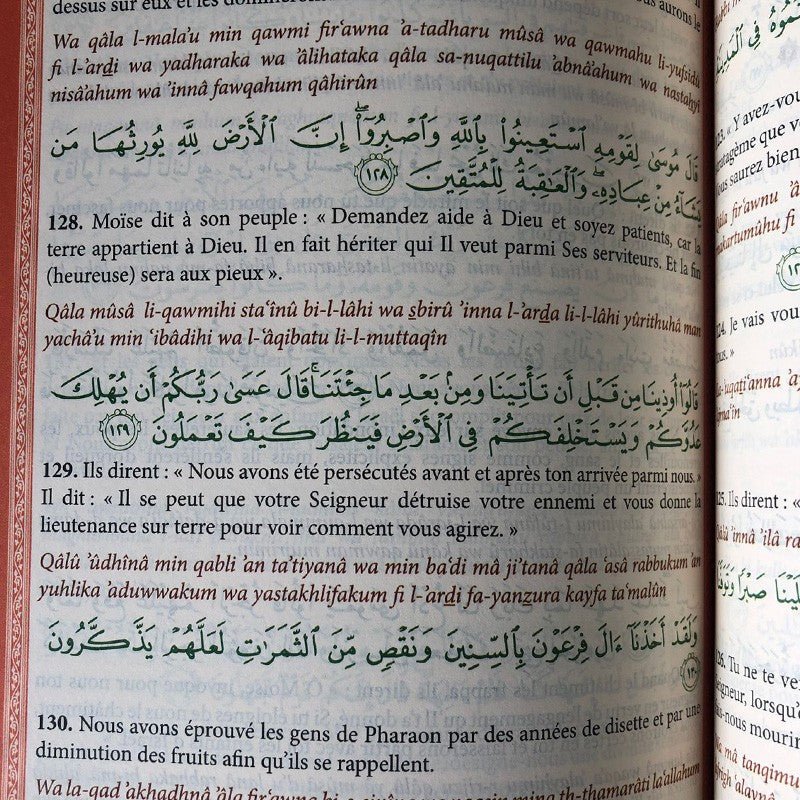 dessus sur eux et les dominerons
ous aurons le
Wa qâla l-mala'u min qawmi fir'awna 'a-tadharu mûsâ wa qawmahu li-yufsidû
fi l-'ardi wa yadharaka wa 'âlihataka qâla sa-nuqattilu 'abnâ'ahum wa nastahyî
nisâ'ahum wa 'innâ fawqahum qâhirûn
قَالَ مُوسَىٰ لِقَوْمِهِ ٱسْتَعِينُوا۟ بِٱللَّهِ وَٱصْبِرُوٓا۟ ۖ إِنَّ ٱلْأَرْضَ لِلَّهِ يُورِثُهَا مَن
يَشَآءُ مِنْ عِبَادِهِۦ ۖ وَٱلْعَٰقِبَةُ لِلْمُتَّقِينَ ١٢٨
128. Moïse dit à son peuple : « Demandez aide à Dieu et soyez patients, car la
terre appartient à Dieu. Il en fait hériter qui Il veut parmi Ses serviteurs. Et la fin
(heureuse) sera aux pieux ».
Qâla mûsâ li-qawmihi sta'înû bi-l-lâhi wa sbirû 'inna l-'arda li-l-lâhi yûrithuhâ man
yachâ'u min 'ibâdihi wa l-'âqibatu li-l-muttaqîn
قَالُوٓا۟ أُوذِينَا مِن قَبْلِ أَن تَأْتِيَنَا وَمِنۢ بَعْدِ مَا جِئْتَنَا ۚ قَالَ عَسَىٰ رَبُّكُمْ أَن يُهْلِكَ
عَدُوَّكُمْ وَيَسْتَخْلِفَكُمْ فِى ٱلْأَرْضِ فَيَنظُرَ كَيْفَ تَعْمَلُونَ ١٢٩
129. Ils dirent : « Nous avons été persécutés avant et après ton arrivée parmi nous. »
Il dit : « Il se peut que votre Seigneur détruise votre ennemi et vous donne la
lieutenance sur terre pour voir comment vous agirez. »
Qâlû 'ûdhînâ min qabli 'an ta'tiyanâ wa min ba'di mâ ji'tanâ qâla 'asâ rabbukum 'an
yuhlika 'aduwwakum wa yastakhlifakum fi l-'ardi fa-yanzura kayfa ta'malûn
وَلَقَدْ أَخَذْنَآ ءَالَ فِرْعَوْنَ بِٱلسِّنِينَ وَنَقْصٍ مِّنَ ٱلثَّمَرَٰتِ لَعَلَّهُمْ يَذَّكَّرُونَ
١٣٠
130. Nous avons éprouvé les gens de Pharaon par des années de disette et par une
diminution des fruits afin qu'ils se rappellent.
Wa la-qad 'akhadhnâ
th-thamarâti la'allahum
23. « Y avez-vou
ratagème que v
ous saurez bien
Qâla fir'awnu 'â
makartumûhu fi
24. Je vais vou
ous. »
25. Ils dirent : «
Qâlû 'innâ 'ilâ ra
26. Tu ne te ve
eigneur, lorsqu'
is-nous mourir
a mâ tanqimu